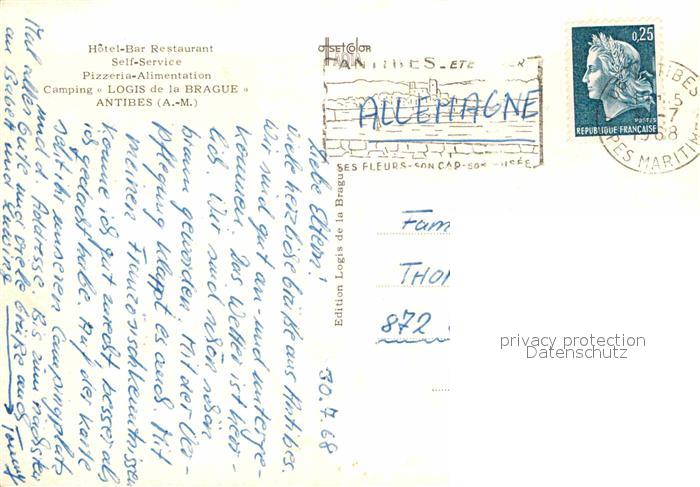 Hôtel-Bar Restaurant
Self-Service
Pizzeria-Alimentation
Camping « LOGIS de la BRAGUE »
ANTIBES (A.-M.)
OFFSET COLOR
ANTIBES - ETE
SES FLEURS-SON CAP-SON MUSÉE
0,25
POSTES
RÉPUBLIQUE FRANÇAISE
ANTIBES
-7
1968
PES MARITIM
ALLEMAGNE
Edition Logis de la Brague
Fam
THO
872
privacy protection
Datenschutz
30.7.68
Liebe Eltern!
Viele herzliche Grüße aus Antibes.
Wir sind gut an- und unterge-
kommen. Das Wetter ist herr-
lich. Wir sind schon schön
braun geworden. Mit der Ver-
pflegung klappt es auch. Mit
meinen Französischkenntnissen
komme ich gut zurecht besser als
ich gedacht habe. Auf der Karte
seht ihr unseren Campingplatz
und d. Addresse. Bis zum nächsten
Mal alles Gute und viele Grüße auch
an Babett und